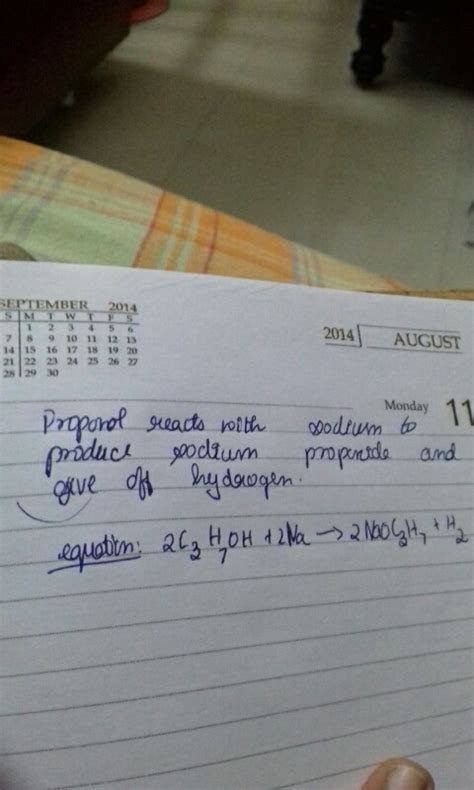 SEPTEMBER 2014
S M T W T F S
1 2 3 4 5 6
7 8 9 10 11 12 13
14 15 16 17 18 19 20
21 22 23 24 25 26 27
28 29 30
2014 AUGUST
Monday 11
Propanol reacts with sodium to
produce sodium propoxide and
give off hydrogen.
equation: 2C₃H₇OH + 2Na → 2NaOC₃H₇ + H₂